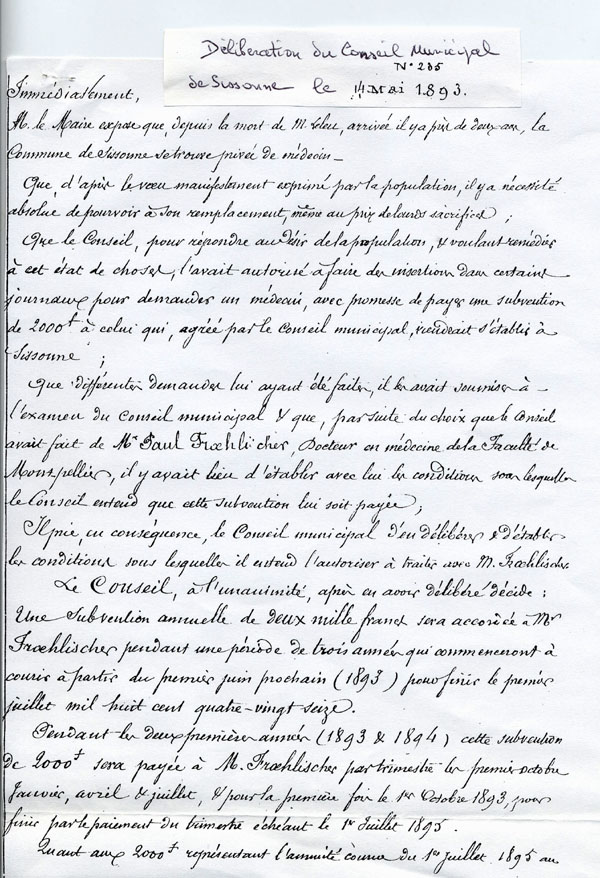 Délibération du Conseil Municipal
N° 285
de Sissonne le 14 Mai 1893.
Immédiatement,
M. le Maire expose que, depuis la mort de M. Leleu, arrivée il y a près de deux ans, la
Commune de Sissonne se trouve privée de médecin _
Que, d'après le vœu manifestement exprimé par la population, il y a nécessité
absolue de pourvoir à son remplacement, même au prix de lourds sacrifices ;
Que le Conseil, pour répondre au désir de la population, & voulant remédier
à cet état de choses, l'avait autorisé à faire des insertions dans certains
journaux pour demander un médecin, avec promesse de payer une subvention
de 2000f à celui qui, agréé par le Conseil municipal, viendrait s'établir à
Sissonne ;
Que différentes demandes lui ayant été faites, il les avait soumises à _
l'examen du Conseil municipal & que, par suite du choix que le Conseil
avait fait de Mr Paul Frœhlischer, Docteur en médecine de la Faculté de
Montpellier, il y avait lieu d'établir avec lui les conditions sous lesquelles
le Conseil entend que cette subvention lui soit payée ;
Il prie, en conséquence, le Conseil municipal d'en délibérer & d'établir
les conditions sous lesquelles il entend l'autoriser à traiter avec M. Frœhlischer.
Le Conseil, à l'unanimité, après en avoir délibéré décide :
Une subvention annuelle de deux mille francs sera accordée à Mr
Frœhlischer pendant une période de trois années qui commenceront à
courir à partir du premier juin prochain (1893) pour finir le premier
juillet mil huit cent quatre-vingt seize.
Pendant les deux premières années (1893 & 1894) cette subvention
de 2000f sera payée à M. Frœhlischer par trimestre les premier octobre
Janvier, avril & juillet, & pour la première fois le 1er Octobre 1893, pour
finir par le paiement du trimestre échéant le 1er Juillet 1895.
Quant aux 2000f représentant l'annuité courue du 1er Juillet 1895 au